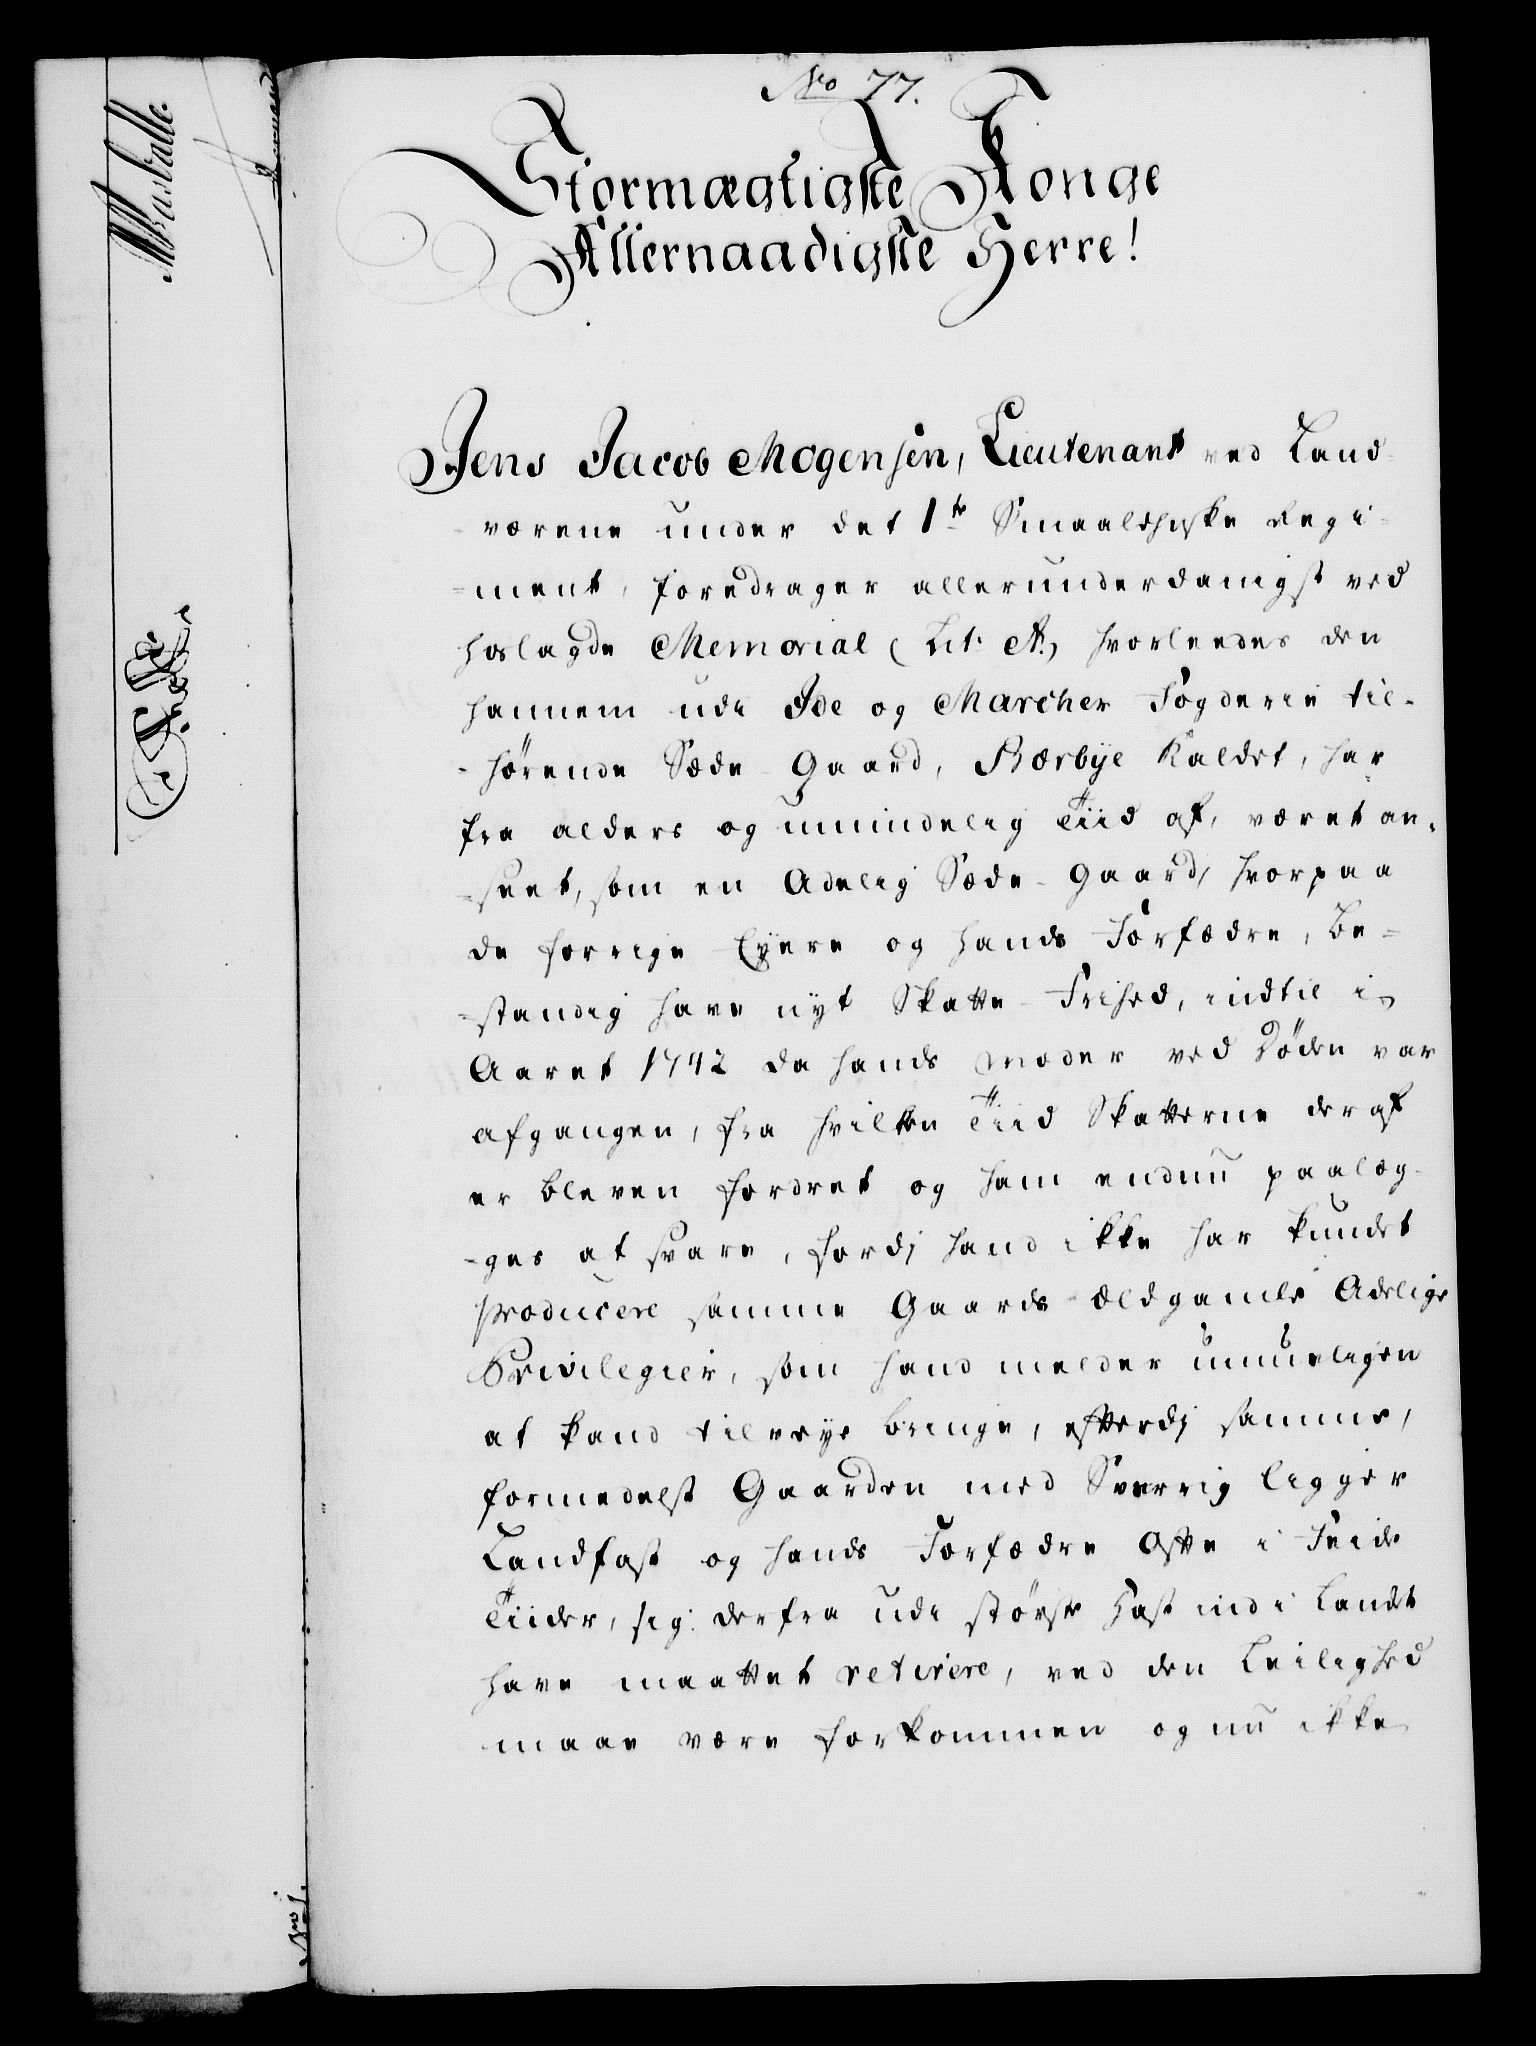 No 77.
Stormægtigste Konge
Allernaadigste Herre!
Jens Jacob Mogensen, Lieutenant ved Land-
værene under det 1te Smaalehnske Regi-
-ment, foredrager allerunderdanigst ved
hoslagde Memorial (Lit: A.) hvorleedes den
hannem udi Ide og Marcher Fogderie til-
-hørende Sæde-Gaard, Bærbÿe kaldet, har
fra alders og umindelig Tiid af, været an-
-seet, som en Adelig Sæde-Gaard, hvorpaa
de forrige Eÿere og hands Forfædre, be-
-standig have nÿt Skatte-Frihed, indtil i
Aaret 1742 da hands Moder ved Døden var
afgangen, fra hvilken Tiid Skatterne deraf
er bleven fordret og ham endnu paalæg-
-ges at svare, fordj hand ikke har kundet
producere samme Gaards Ældgamle Adelige
Privilegier, som hand melder umueligen
at kand tilveÿe bringe, efterdj samme,
formedelst Gaarden med Sverrig ligger
Landfast og hands Forfædre Ofte i Feide
Tiider, sig derfra udi største Hast ind i Landet
have maattet retirere, ved den Leilighed
maae være forkommen og nu ikke
No 1.